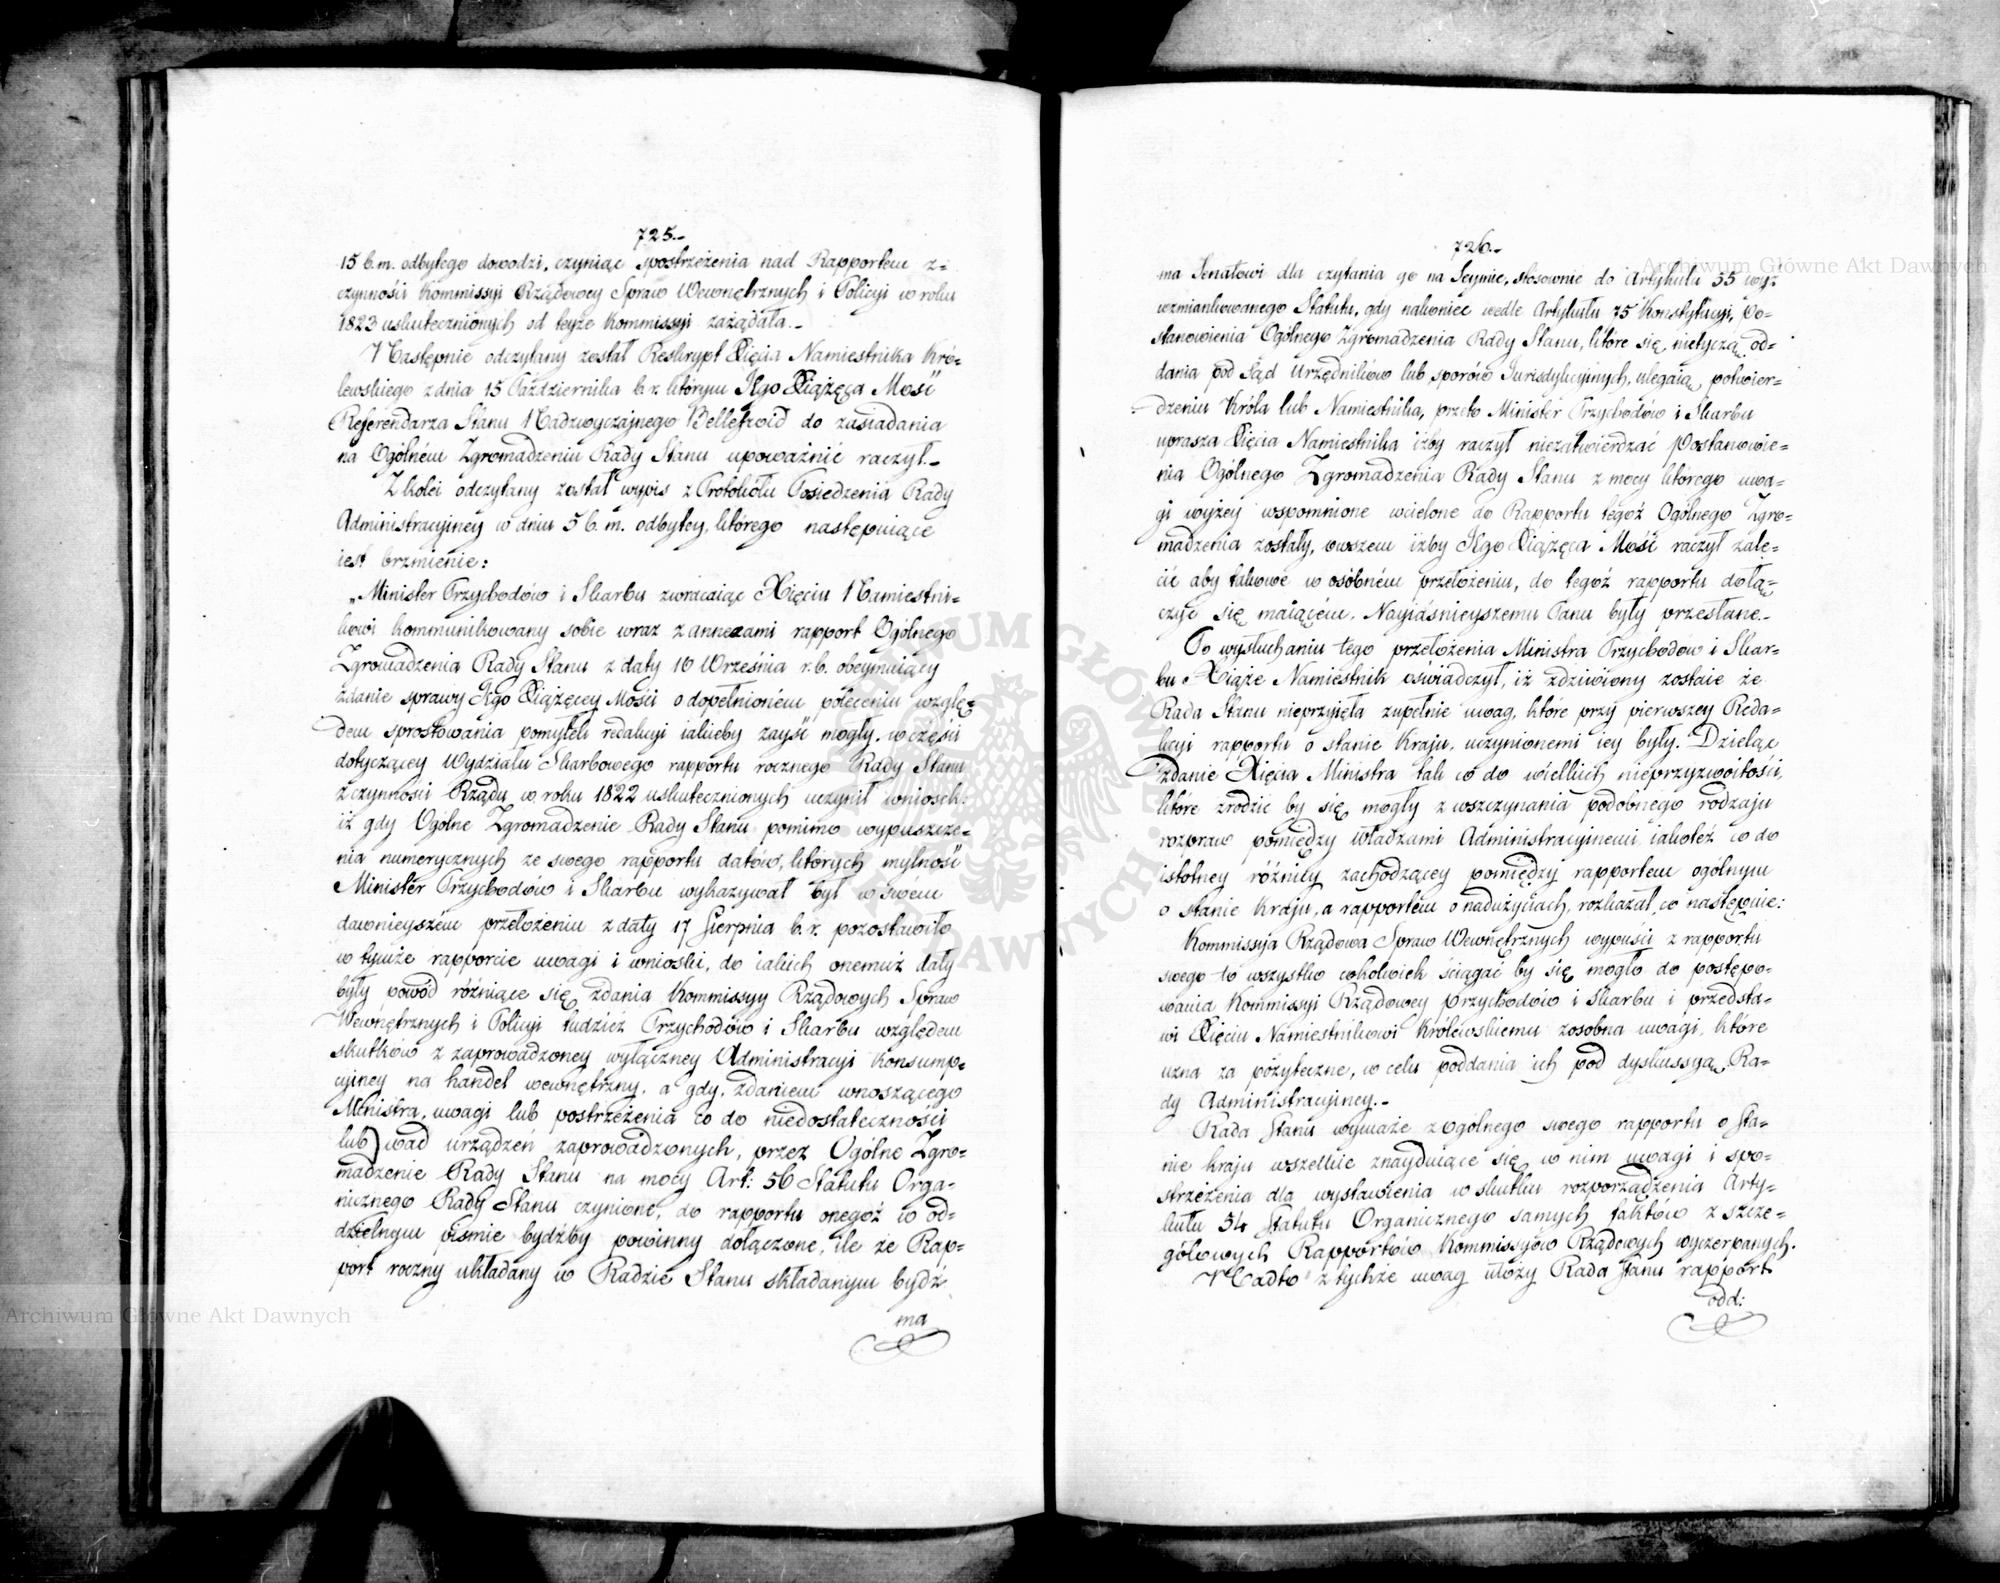 725.-
15 b.m. odbytego dowodzi, czyniąc spostrzeżenia nad Rapportem z-
czynności Kommissyi Rządowey Spraw Wewnętrznych i Policyi w roku
1823 uskutecznionych od teyże Kommissyi zażądała.-
Następnie odczytany został Reskrypt Xięcia Namiestnika Kró-
lewskiego z dnia 15 Października b.r. którym Jego Xiążęca Mość
Referendarza Stanu Nadzwyczajnego Bellefroid do zasiadania
na Ogólném Zgromadzeniu Rady Stanu upoważnić raczył.-
Z kolei odczytany został wypis z Protokółu Posiedzenia Rady
Administracyjney w dniu 5 b.m. odbytey, którego następujące
iest brzmienie:
„Minister Przychodów i Skarbu zwracaiąc Xięciu Namiestni-
kowi kommunikowany sobie wraz z annexami rapport Ogólnego
Zgromadzenia Rady Stanu z daty 16 Września r.b. obeymuiący
zdanie sprawy Jego Xiążęcey Mości o dopełnioném poleceniu wzglę-
dem sprostowania pomyłek redakcyi iakieby zayść mogły, w części
dotyczącey Wydziału Skarbowego rapportu rocznego Rady Stanu
z czynności Rządu w roku 1822 uskutecznionych uczynił wniosek:
iż gdy Ogólne Zgromadzenie Rady Stanu pomimo wypuszcze-
nia numerycznych ze swego rapportu datów, których mylność
Minister Przychodów i Skarbu wykazywał był w swém
dawnieyszém przełożeniu z daty 17 Sierpnia b.r. pozostawiło
w tymże rapporcie uwagi i wnioski, do iakich onemuż dały
były powód różniące się zdania Kommissyy Rządowych Spraw
Wewnętrznych i Policyi tudzież Przychodów i Skarbu względem
skutków z zaprowadzoney wyłączney Administracyi Konsump-
cyjney na handel wewnętrzny, a gdy, zdaniem wnoszącego
Ministra, uwagi lub postrzeżenia co do niedostateczności
lub wad urządzeń zaprowadzonych, przez Ogólne Zgro-
madzenie Rady Stanu na mocy Art: 56 Statutu Orga-
nicznego Rady Stanu czynione, do rapportu onegoż w od-
dzielnym piśmie bydźby powinny dołączone, ile że Rap-
port roczny układany w Radzie Stanu składanym bydź
ma
726.-
ma Senatowi dla czytania go na Seymie, stosownie do Artykułu 55 wyż
wzmiankowanego Statutu, gdy nakoniec wedle Artykułu 75 Konstytucyi, Po-
stanowienia Ogólnego Zgromadzenia Rady Stanu, które się nietyczą od-
dania pod Sąd Urzędników lub sporów Jurisdykcyjnych, ulegaią potwier-
dzeniu Króla lub Namiestnika, przeto Minister Przychodów i Skarbu
uprasza Xięcia Namiestnika iżby raczył niezatwierdzać Postanowie-
nia Ogólnego Zgromadzenia Rady Stanu z mocy którego uwa-
gi wyżey wspomnione wcielone do Rapportu tegoż Ogólnego Zgro-
madzenia zostały, owszem iżby Jego Xiążęca Mość raczył zale-
cić aby takowe w osóbném przełożeniu, do tegoż rapportu dołą-
czyć się maiącém, Nayiaśnieyszemu Panu były przesłane.-
Po wysłuchaniu tego przełożenia Ministra Przychodów i Skar-
bu Xiąże Namiestnik oświadczył, iż zdziwiony zostaie że
Rada Stanu nieprzyięła zupełnie uwag, które przy pierwszey Reda-
kcyi rapportu o stanie Kraju, uczynionemi iey były. Dzieląc
zdanie Xięcia Ministra tak co do wielkich nieprzyzwoitości,
które zrodzić by się mogły z wszczynania podobnego rodzaju
rozpraw pomiędzy Władzami Administracyjnemi iakoteż co do
istotney różnicy zachodzącey pomiędzy rapportem ogólnym
o stanie Kraju, a rapportem o nadużyciach, rozkazał, co następuie:
Kommissyja Rządowa Spraw Wewnętrznych wypuści z rapportu
swego to wszystko cokolwiek ściągać by się mogło do postępo-
wania Kommissyi Rządowey Przychodów i Skarbu i przedsta-
wi Xięciu Namiestnikowi Królewskiemu zosobna uwagi, które
uzna za pożyteczne, w celu poddania ich pod dyskussyą Ra-
dy Administracyjney.-
Rada Stanu wymaże z ogólnego swego rapportu o Sta-
nie kraju wszelkie znayduiące się w nim uwagi i spo-
strzeżenia dla wystawienia w skutku rozporządzenia Arty-
kułu 54 Statutu Organicznego samych faktów z szcze-
gółowych Rapportów Kommissyów Rządowych wyczerpanych.
Nadto z tychże uwag ułoży Rada Stanu rapport
odd:
Archiwum Główne Akt Dawnych
Archiwum Główne Akt Dawnych